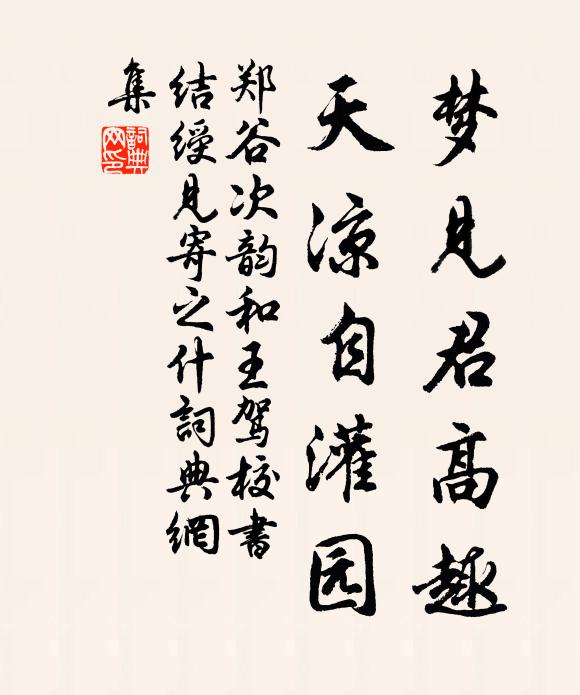 梦见君高趣
天凉自灌园
郑谷次韵和王驾校书
结绶见寄之什词典網
集
詞典网印